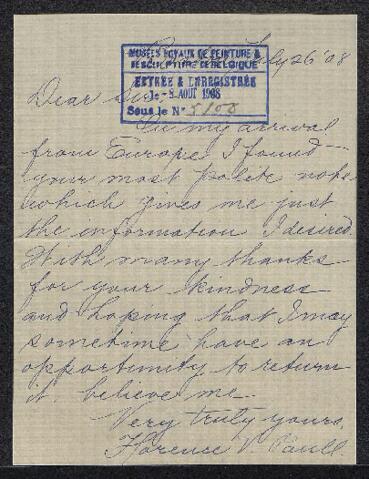 July 26 '08
MUSÉES ROYAUX DE PEINTURE &
DE SCULPTURE DE BELGIQUE
ENTRÉE & ENREGISTRÉE
le - 8 AOUT 1908
Sous le No 5108
Dear Sir,
On my arrival
from Europe I found
your most polite note
which gives me just
the information I desired.
With many thanks
for your kindness
and hoping that I may
sometime have an
opportunity to return
it, believe me
Very truly yours,
Florence V. Paull